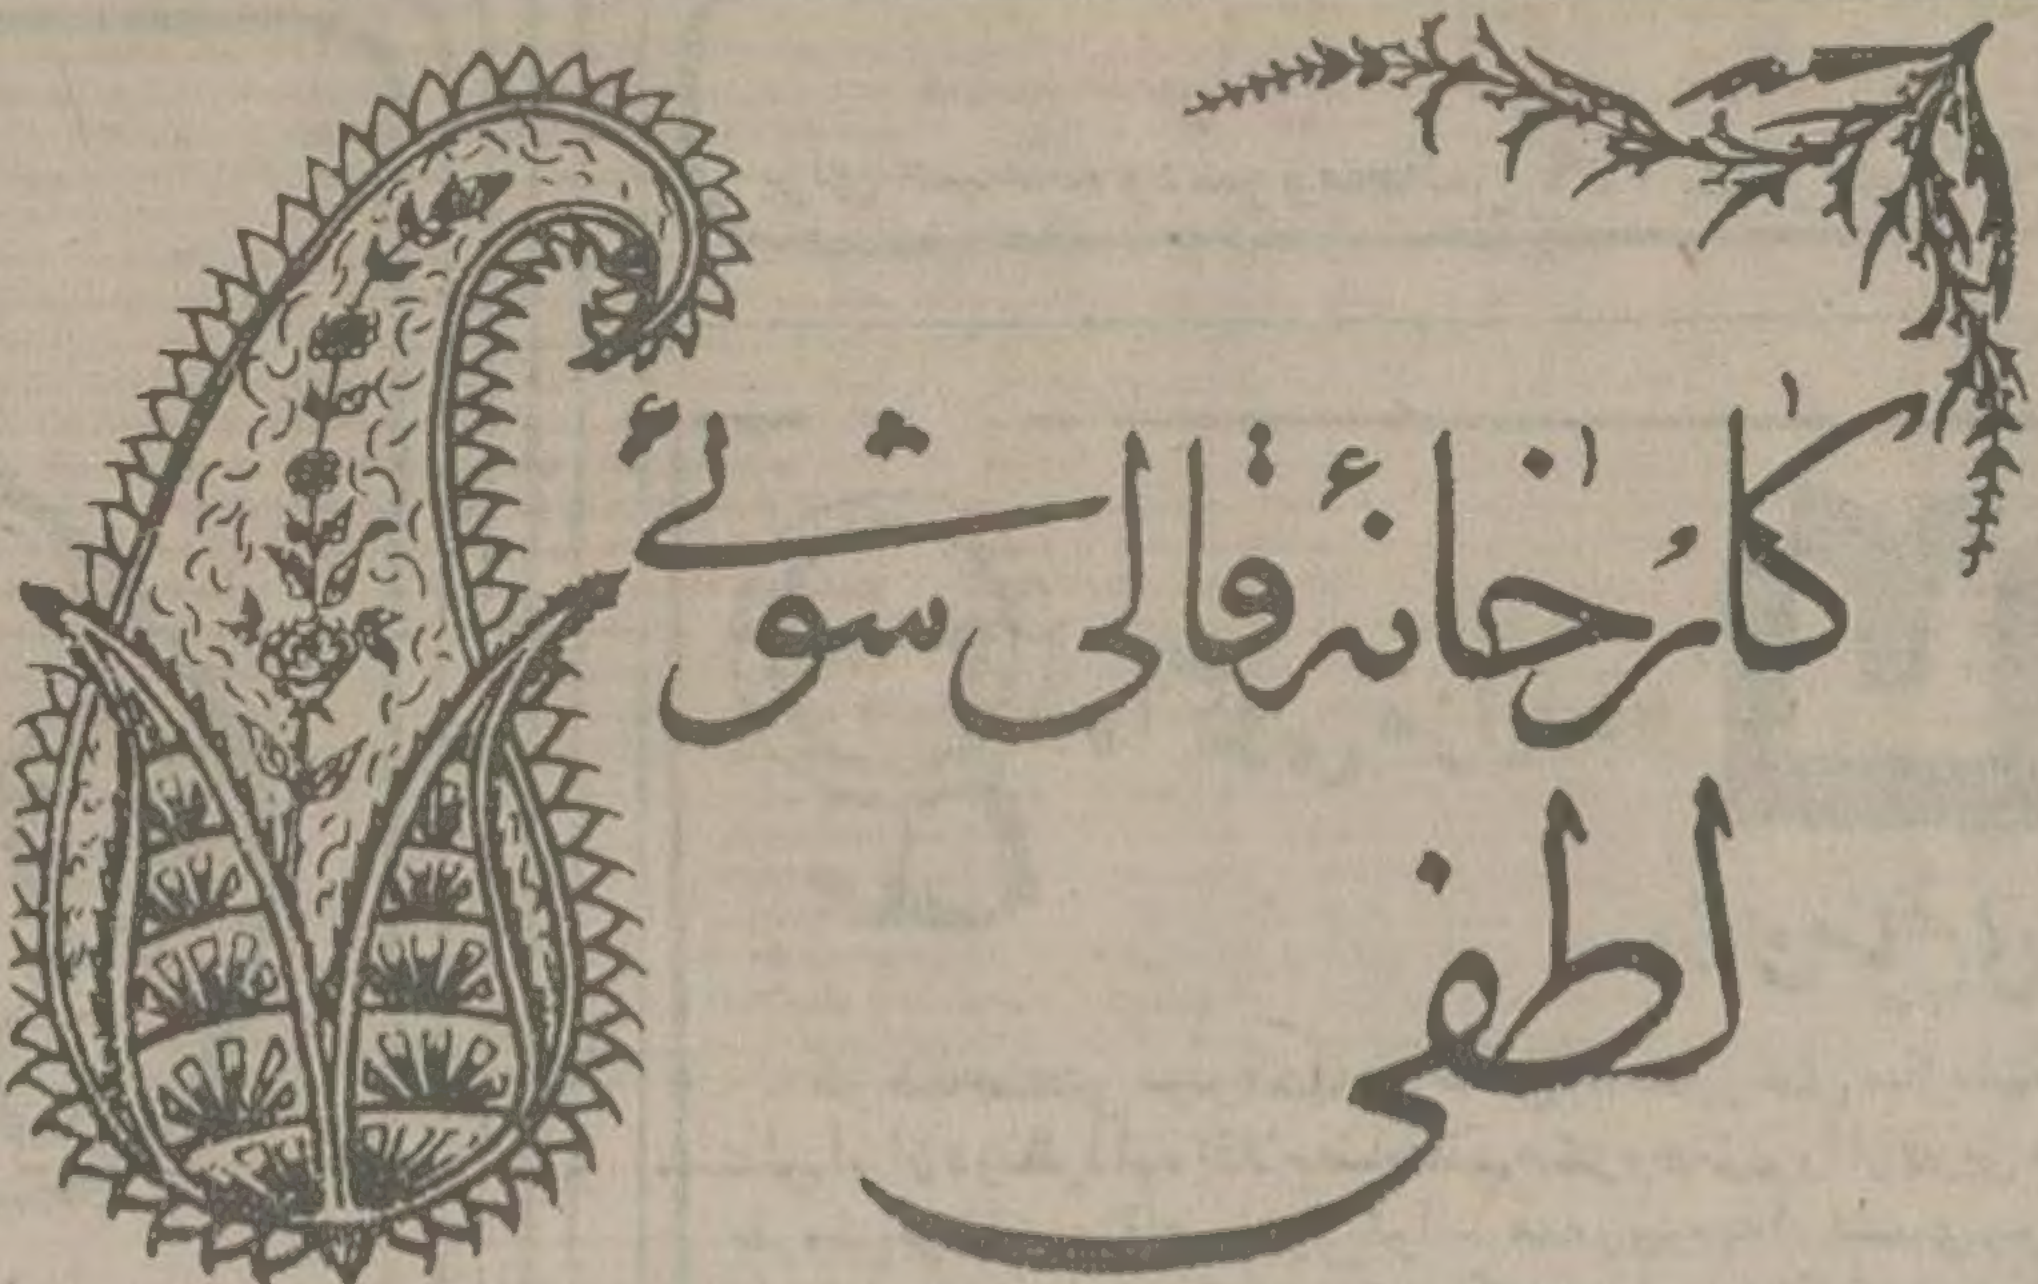 کارخانهٔ قالی شوئی
لطفی